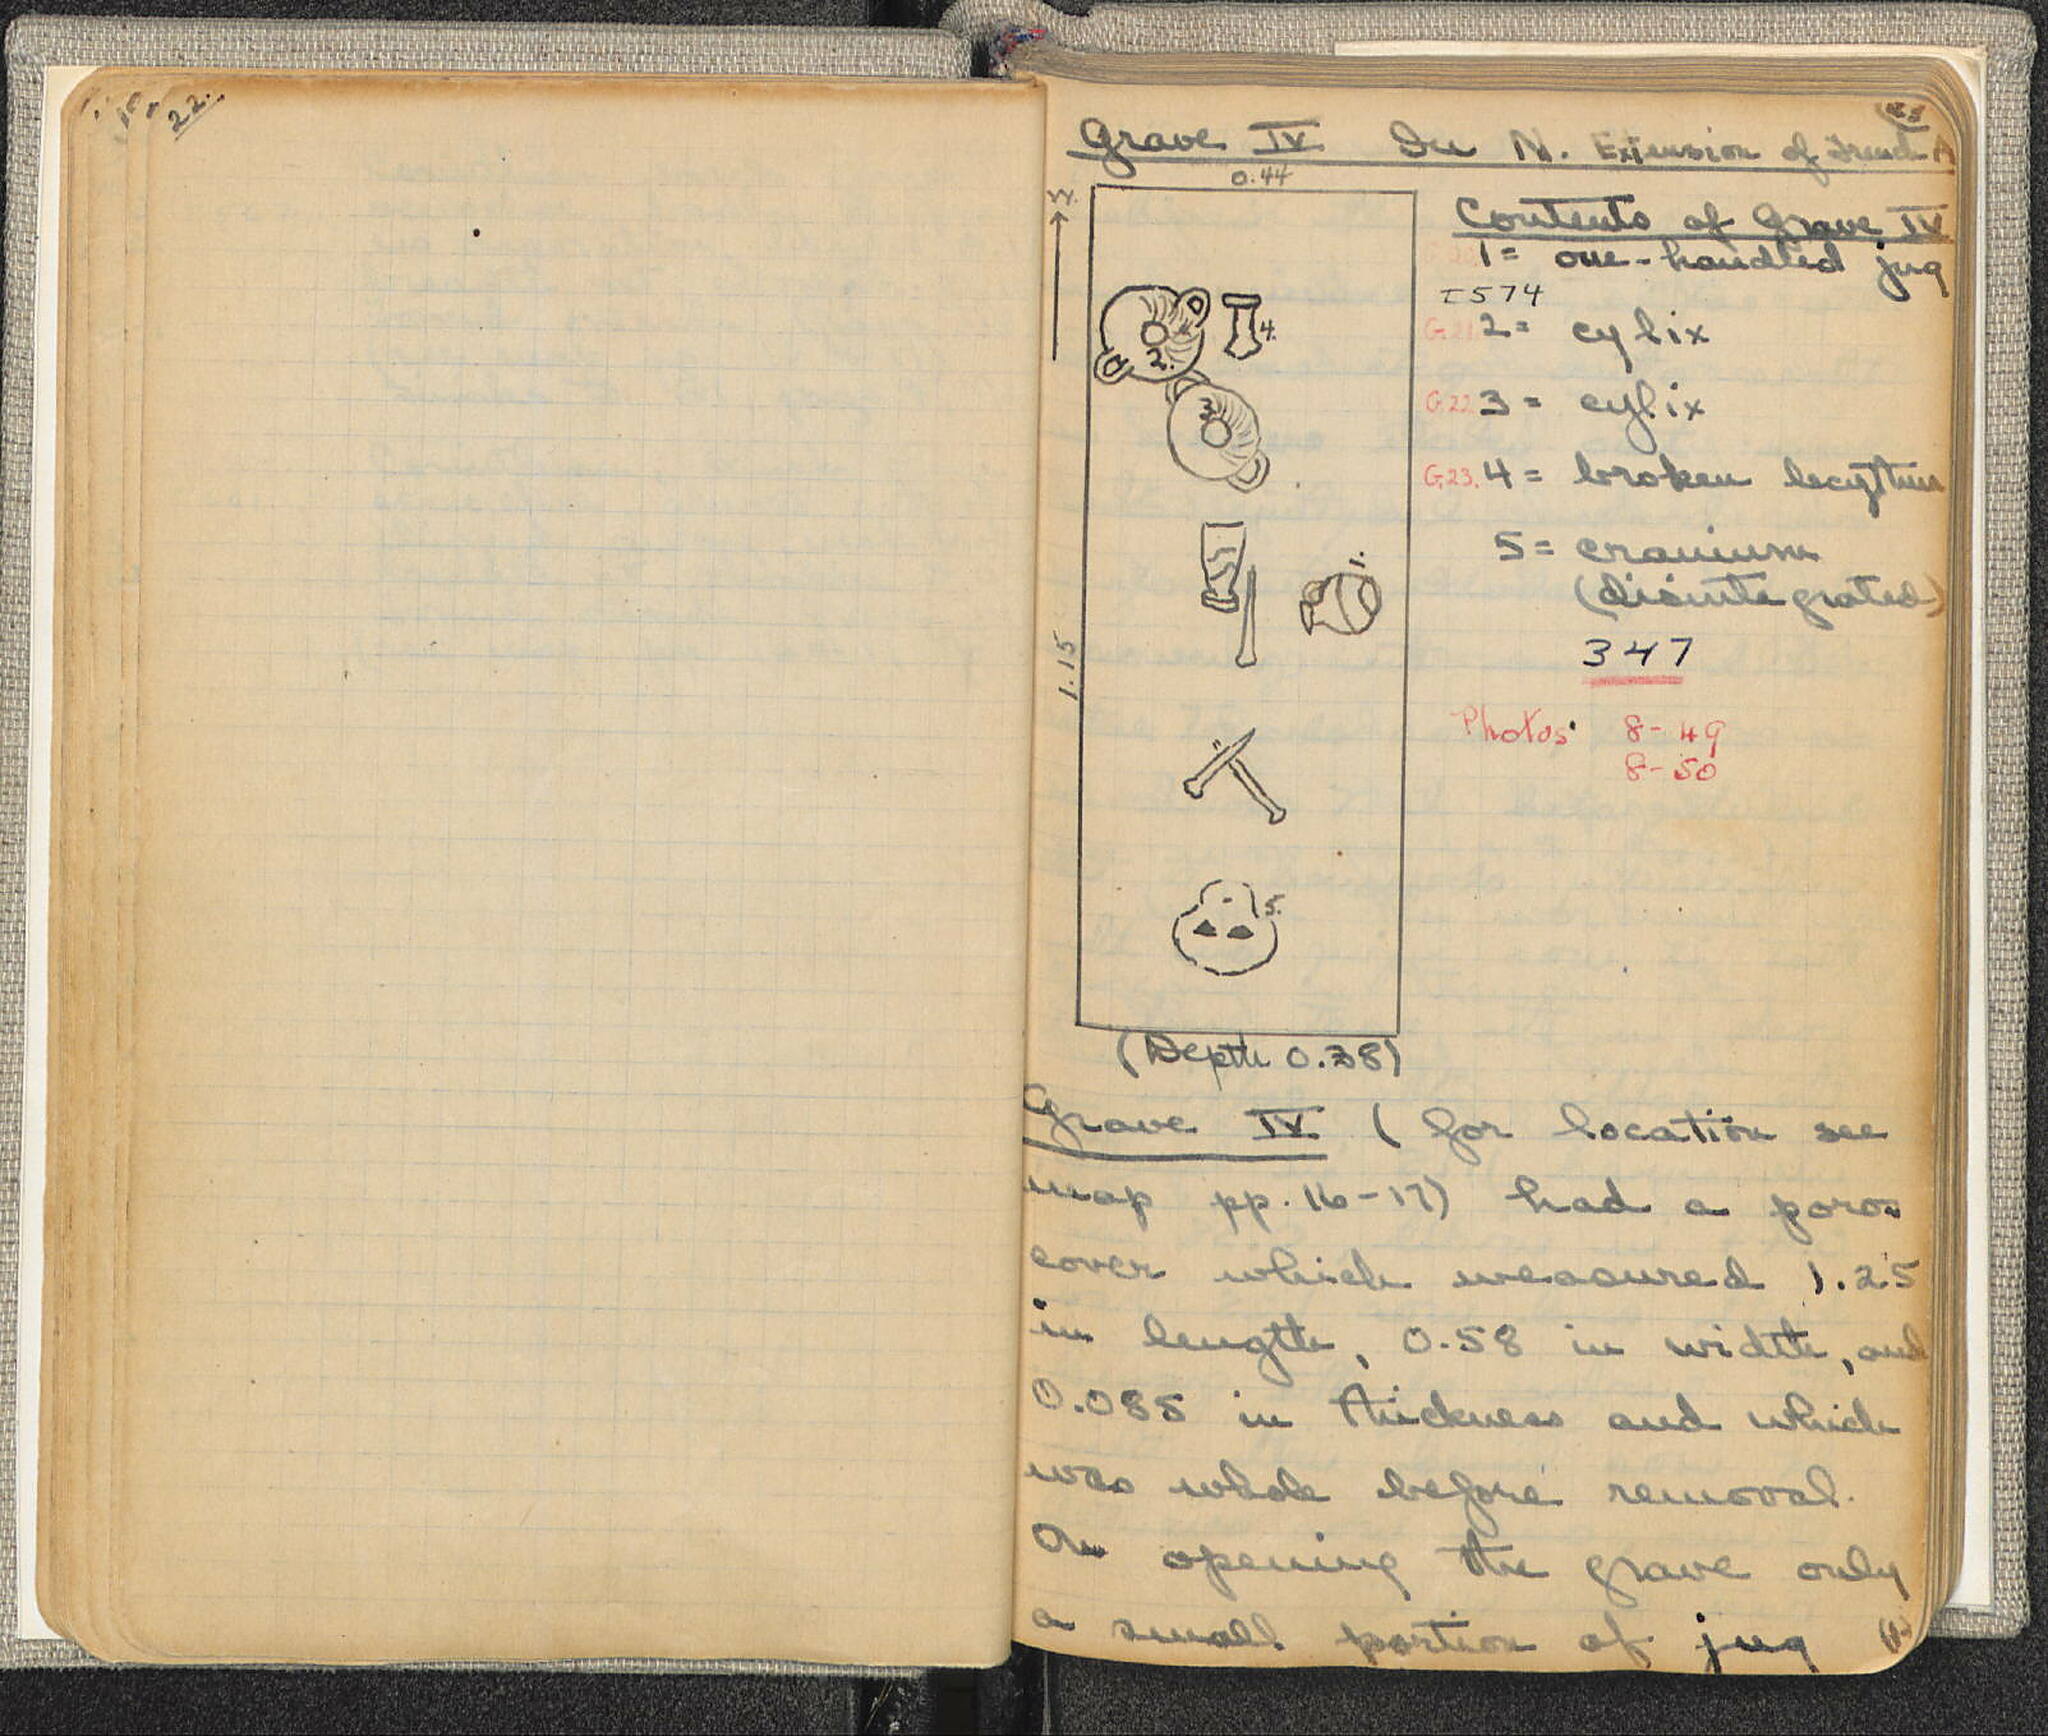 22.
23
Grave IV In N. Extension of Trench A
0.44
N.
Contents of Grave IV
1 = one-handled jug
T574
G.21. 2 = cylix
G.22. 3 = cylix
G.23. 4 = broken lecythus
5 = cranium
(disintegrated)
347
Photos: 8-49
8-50
2.
4.
3.
1.
1.15
5.
(Depth 0.38)
Grave IV (for location see
map pp. 16-17) had a poros
cover which measured 1.25
in length, 0.58 in width, and
0.085 in thickness and which
was whole before removal.
On opening the grave only
a small portion of jug